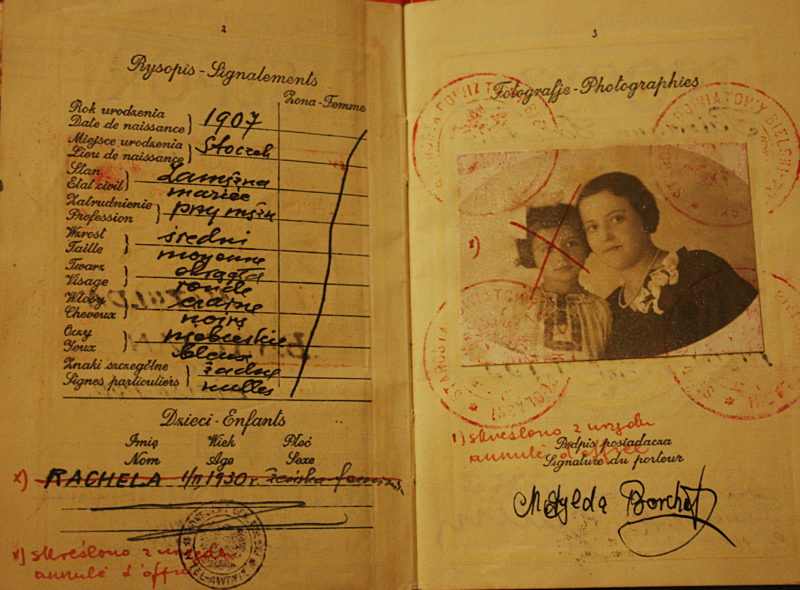 2
Rysopis - Signalements
Żona - Femme
Rok urodzenia
Date de naissance } 1907
Miejsce urodzenia
Lieu de naissance } Stoczek
Stan
Etat civil } zamężna
mariée
Zatrudnienie
Profession } przy mężu
Wzrost
Taille } średni
moyenne
Twarz
Visage } okrągła
ronde
Włosy
Cheveux } czarne
noirs
Oczy
Yeux } niebieskie
bleus
Znaki szczególne
Signes particuliers } żadne
nulles
Dzieci - Enfants
Imię Wiek Płeć
Nom Age Sexe
x) RACHELA 1/II 1930 r. żeńska-feminin
x) skreślono z urzędu
annulé d'office
3
Fotografje - Photographies
1)
1) skreślono z urzędu
annulé d'office
Podpis posiadacza
Signature du porteur